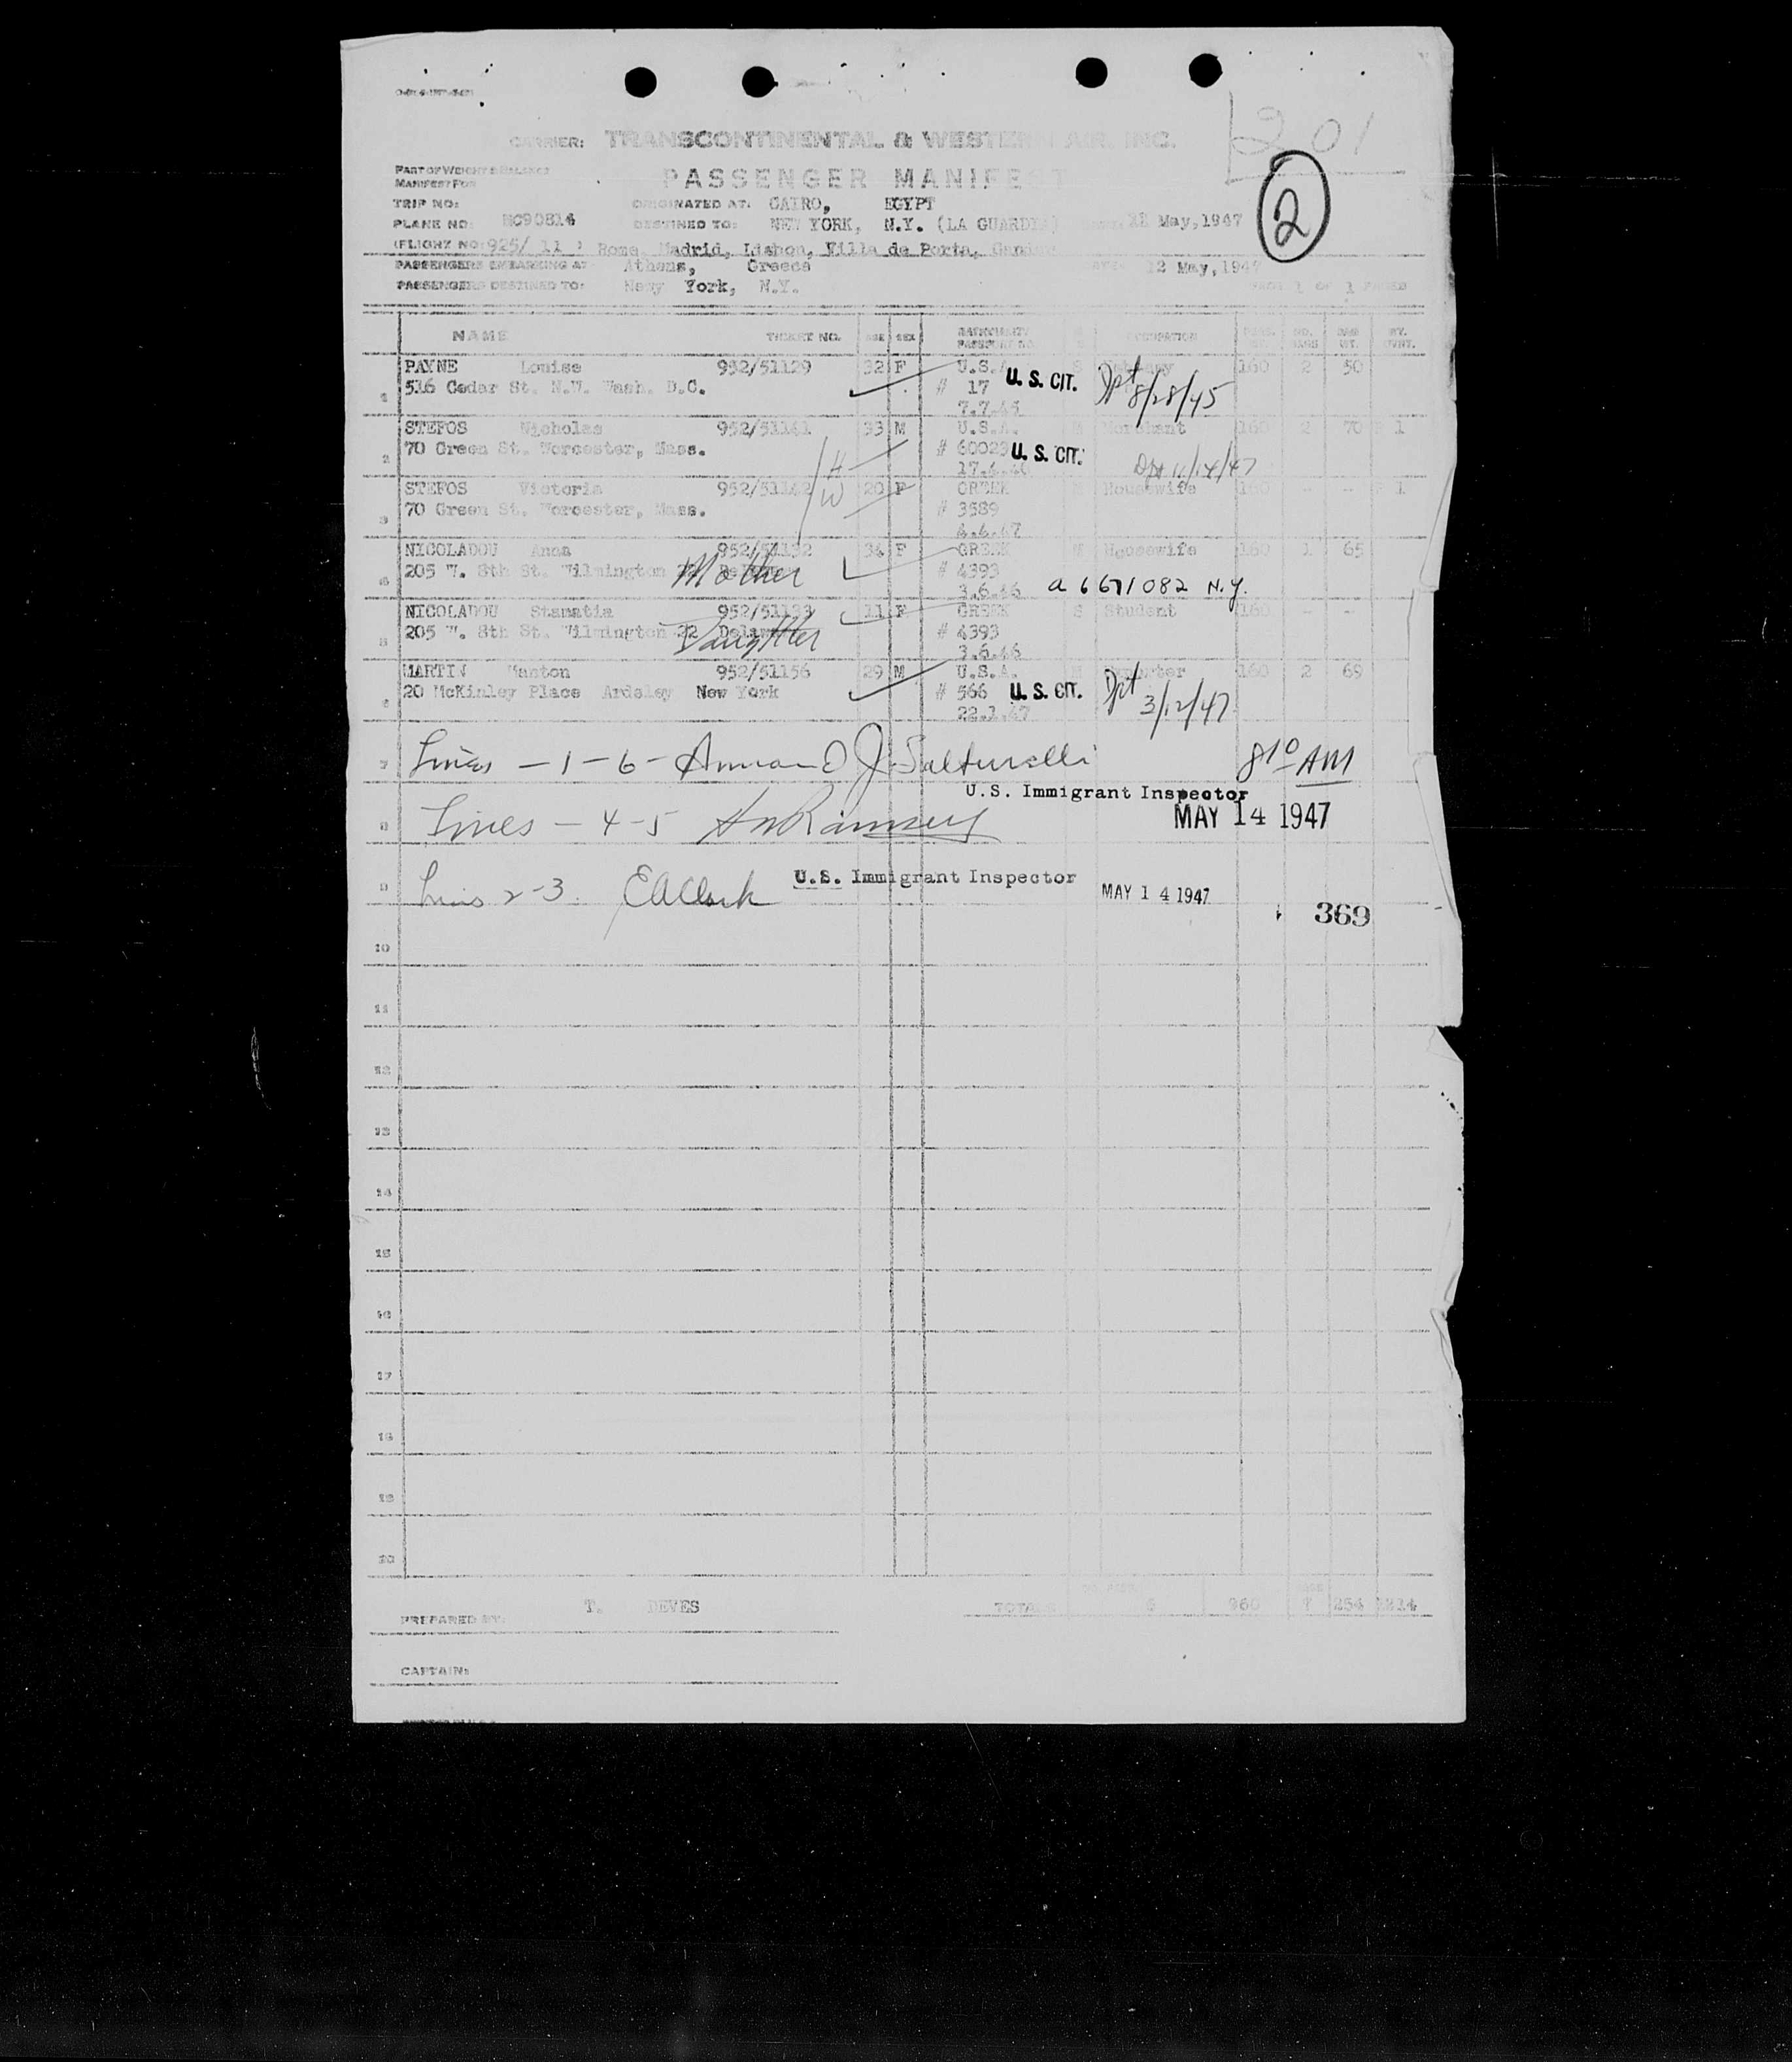 201
CARRIER: TRANSCONTINENTAL & WESTERN AIR, INC.
PART OF WEIGHT & BALANCE
MANIFEST FOR
PASSENGER MANIFEST
2
TRIP NO: ORIGINATED AT: CAIRO, EGYPT
PLANE NO: NC90814 DESTINED TO: NEW YORK, N.Y. (LA GUARDIA) May, 1947
(FLIGHT NO: 925/ 11 ) Rome, Madrid, Lisbon, Villa de Porta, Gander
PASSENGERS EMBARKING AT Athens, Greece 12 May, 1947
PASSENGERS DESTINED TO: Newy York, N.Y. PAGE 1 OF 1 PAGES
NAME TICKET NO. AGE SEX NATIONALITY PASSPORT NO. OCCUPATION NO. BAGS BAG WT.
1 PAYNE Louise 952/51129 32 F U.S.A. S 160 2 50
516 Cedar St. N.W. Wash. D.C. # 17 U. S. CIT. Dpt 8/28/45
7.7.45
2 STEFOS Nicholas 952/51141 33 M U.S.A. M Merchant 160 2 70 1
70 Green St. Worcester, Mass. H # 60023 U. S. CIT.
17.4.46
3 STEFOS Victoria 952/51142 W 20 F GREEK Housewife 160 - - 1
70 Green St. Worcester, Mass. # 3589
4.4.47
4 NICOLADOU Anna 952/51132 34 F GREEK M Housewife 160 1 65
205 W. 8th St. Wilmington 22 Mother # 4393
3.6.46 a 6671082 N.Y.
5 NICOLADOU Stamatia 952/51133 11 F GREEK S Student 160 - -
205 W. 8th St. Wilmington 22 Delaware Daughter # 4393
3.6.46
6 MARTIN 952/51156 29 M U.S.A. 160 2 69
20 McKinley Place Ardsley New York # 566 U. S. CIT. Dpt 3/12/47
22.1.47
7 Lines - 1 - 6 - Armand J. Salturelli 8:10 AM
U.S. Immigrant Inspector
MAY 14 1947
8 Lines - 4-5
9 Lines 2-3. E A Clark U.S. Immigrant Inspector MAY 14 1947
369
10
11
12
13
14
15
16
17
18
19
20
PREPARED BY: T. DEVES TOTALS 6 960 7 254 1214
CAPTAIN: